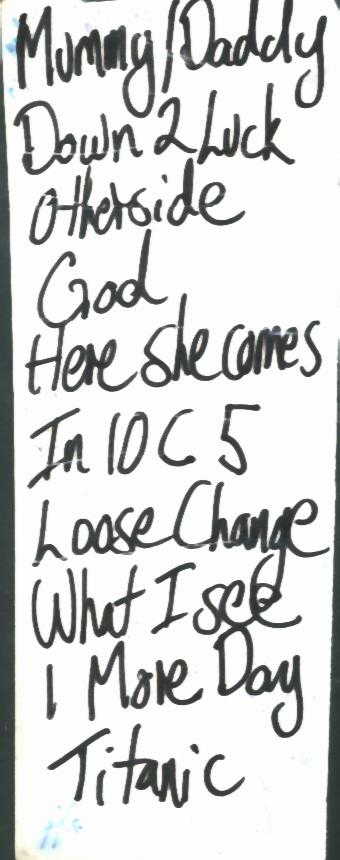 Mummy/Daddy
Down 2 Luck
Otherside
God
Here she comes
In 10 C 5
Loose Change
What I see
1 More Day
Titanic